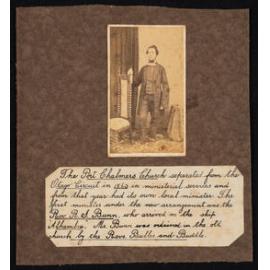 The Port Chalmers Church separated from the
Otago Circuit in 1863 in ministerial services and
from that year had its own local minister. The
first minister under the new arrangement was the
Rev. R. S. Bunn, who arrived in the ship
"Alhambra". Mr. Bunn was ordained in the old
church by the Revs Buller and Buddle.